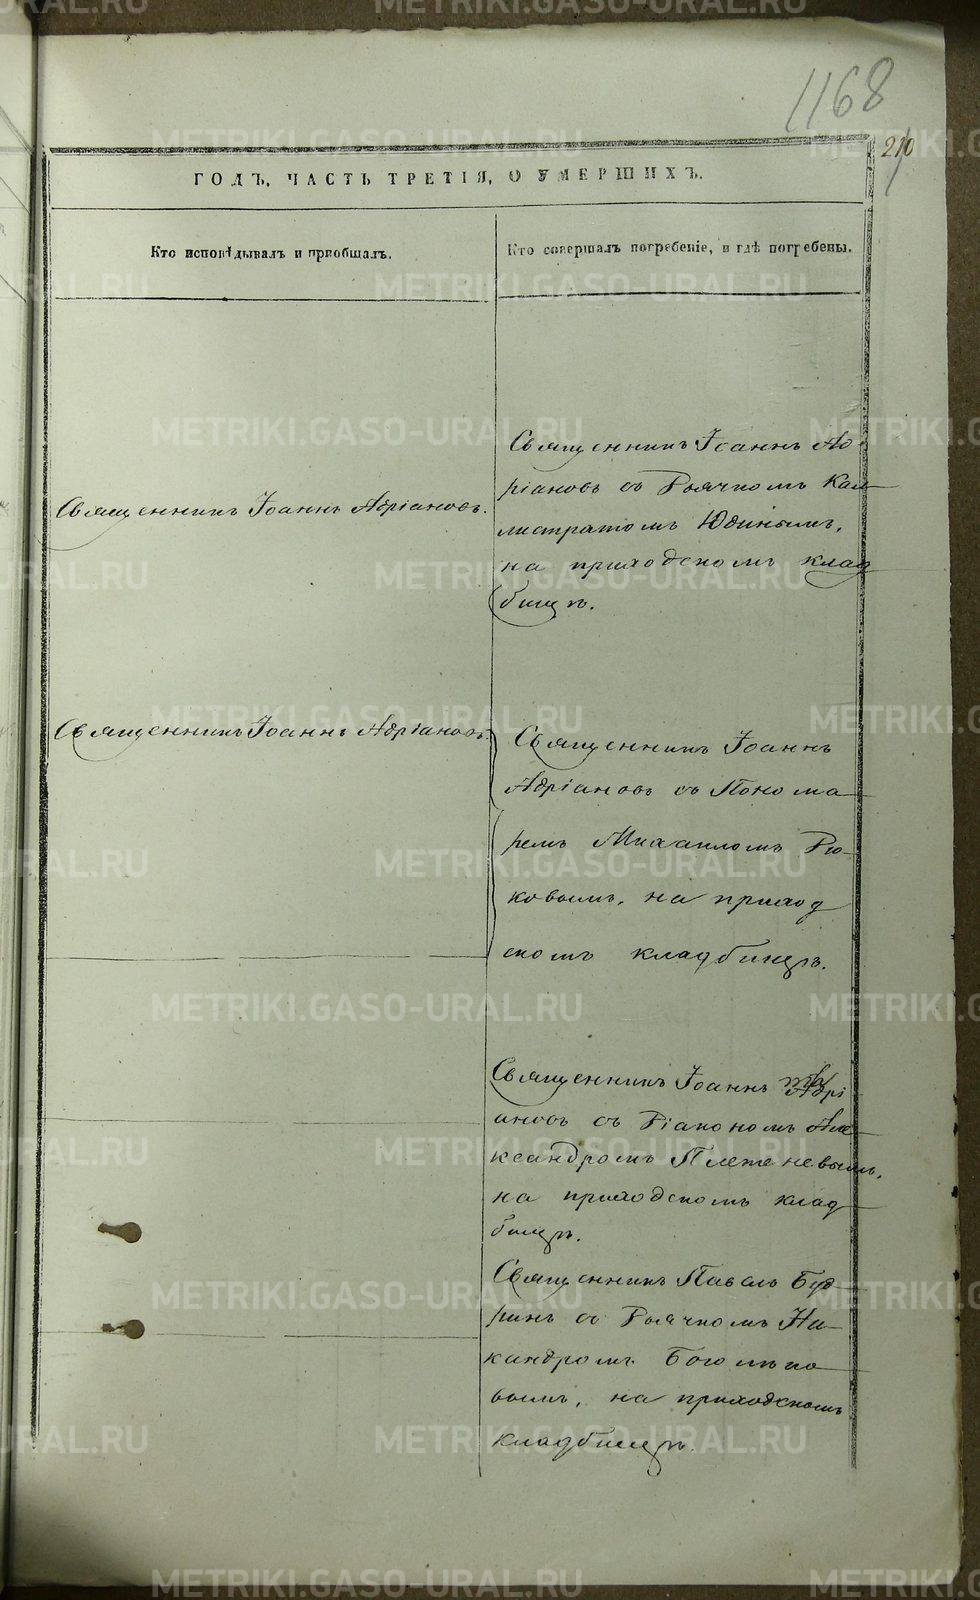 1168
210
ГОДЪ, ЧАСТЬ ТРЕТІЯ, О УМЕРШИХЪ.
Кто исповѣдывалъ и пріобщалъ.
Кто совершалъ погребеніе, и гдѣ погребены.
Священникъ Іоаннъ Адріановъ.
Священникъ Іоаннъ Ад-
ріановъ съ Дьячкомъ Кал-
листратомъ Юдинымъ,
на приходскомъ клад
бищѣ.
Священникъ Іоаннъ Адріановъ.
Священникъ Іоаннъ
Адріановъ съ Понома-
ремъ Михаиломъ
на приход
скомъ кладбищѣ.
Священникъ Іоаннъ Адрі
ановъ съ Діакономъ Але-
ксандромъ
на приходскомъ клад
бищѣ.
Священникъ Павелъ Буд-
ринъ съ Дьячкомъ Ни-
кандромъ
на приходскомъ
кладбищѣ.
METRIKI.GASO-URAL.RU